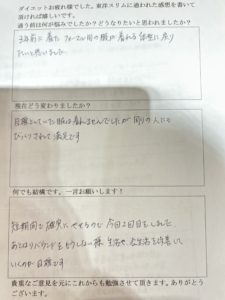 ダイエットお疲れ様でした。東洋スリムに通われた感想を書いて
頂ければ嬉しいです。
通う前は何が悩みでしたか?どうなりたいと思われましたか?
3年前に着たフォーマル用の服が着れる体型に戻り
たいと思いました
現在どう変わりましたか?
目標としていた服は着れませんでしたが周りの人にも
びっくりされて満足です
何でも結構です。一言お願いします!
短期間で確実にやせるので今回2回目をしました
あとはリバウンドをもうしない様生活や食生活を改善して
いくのが目標です
貴重なご意見を元にこれからも勉強させて頂きます。ありがとう
ございます。